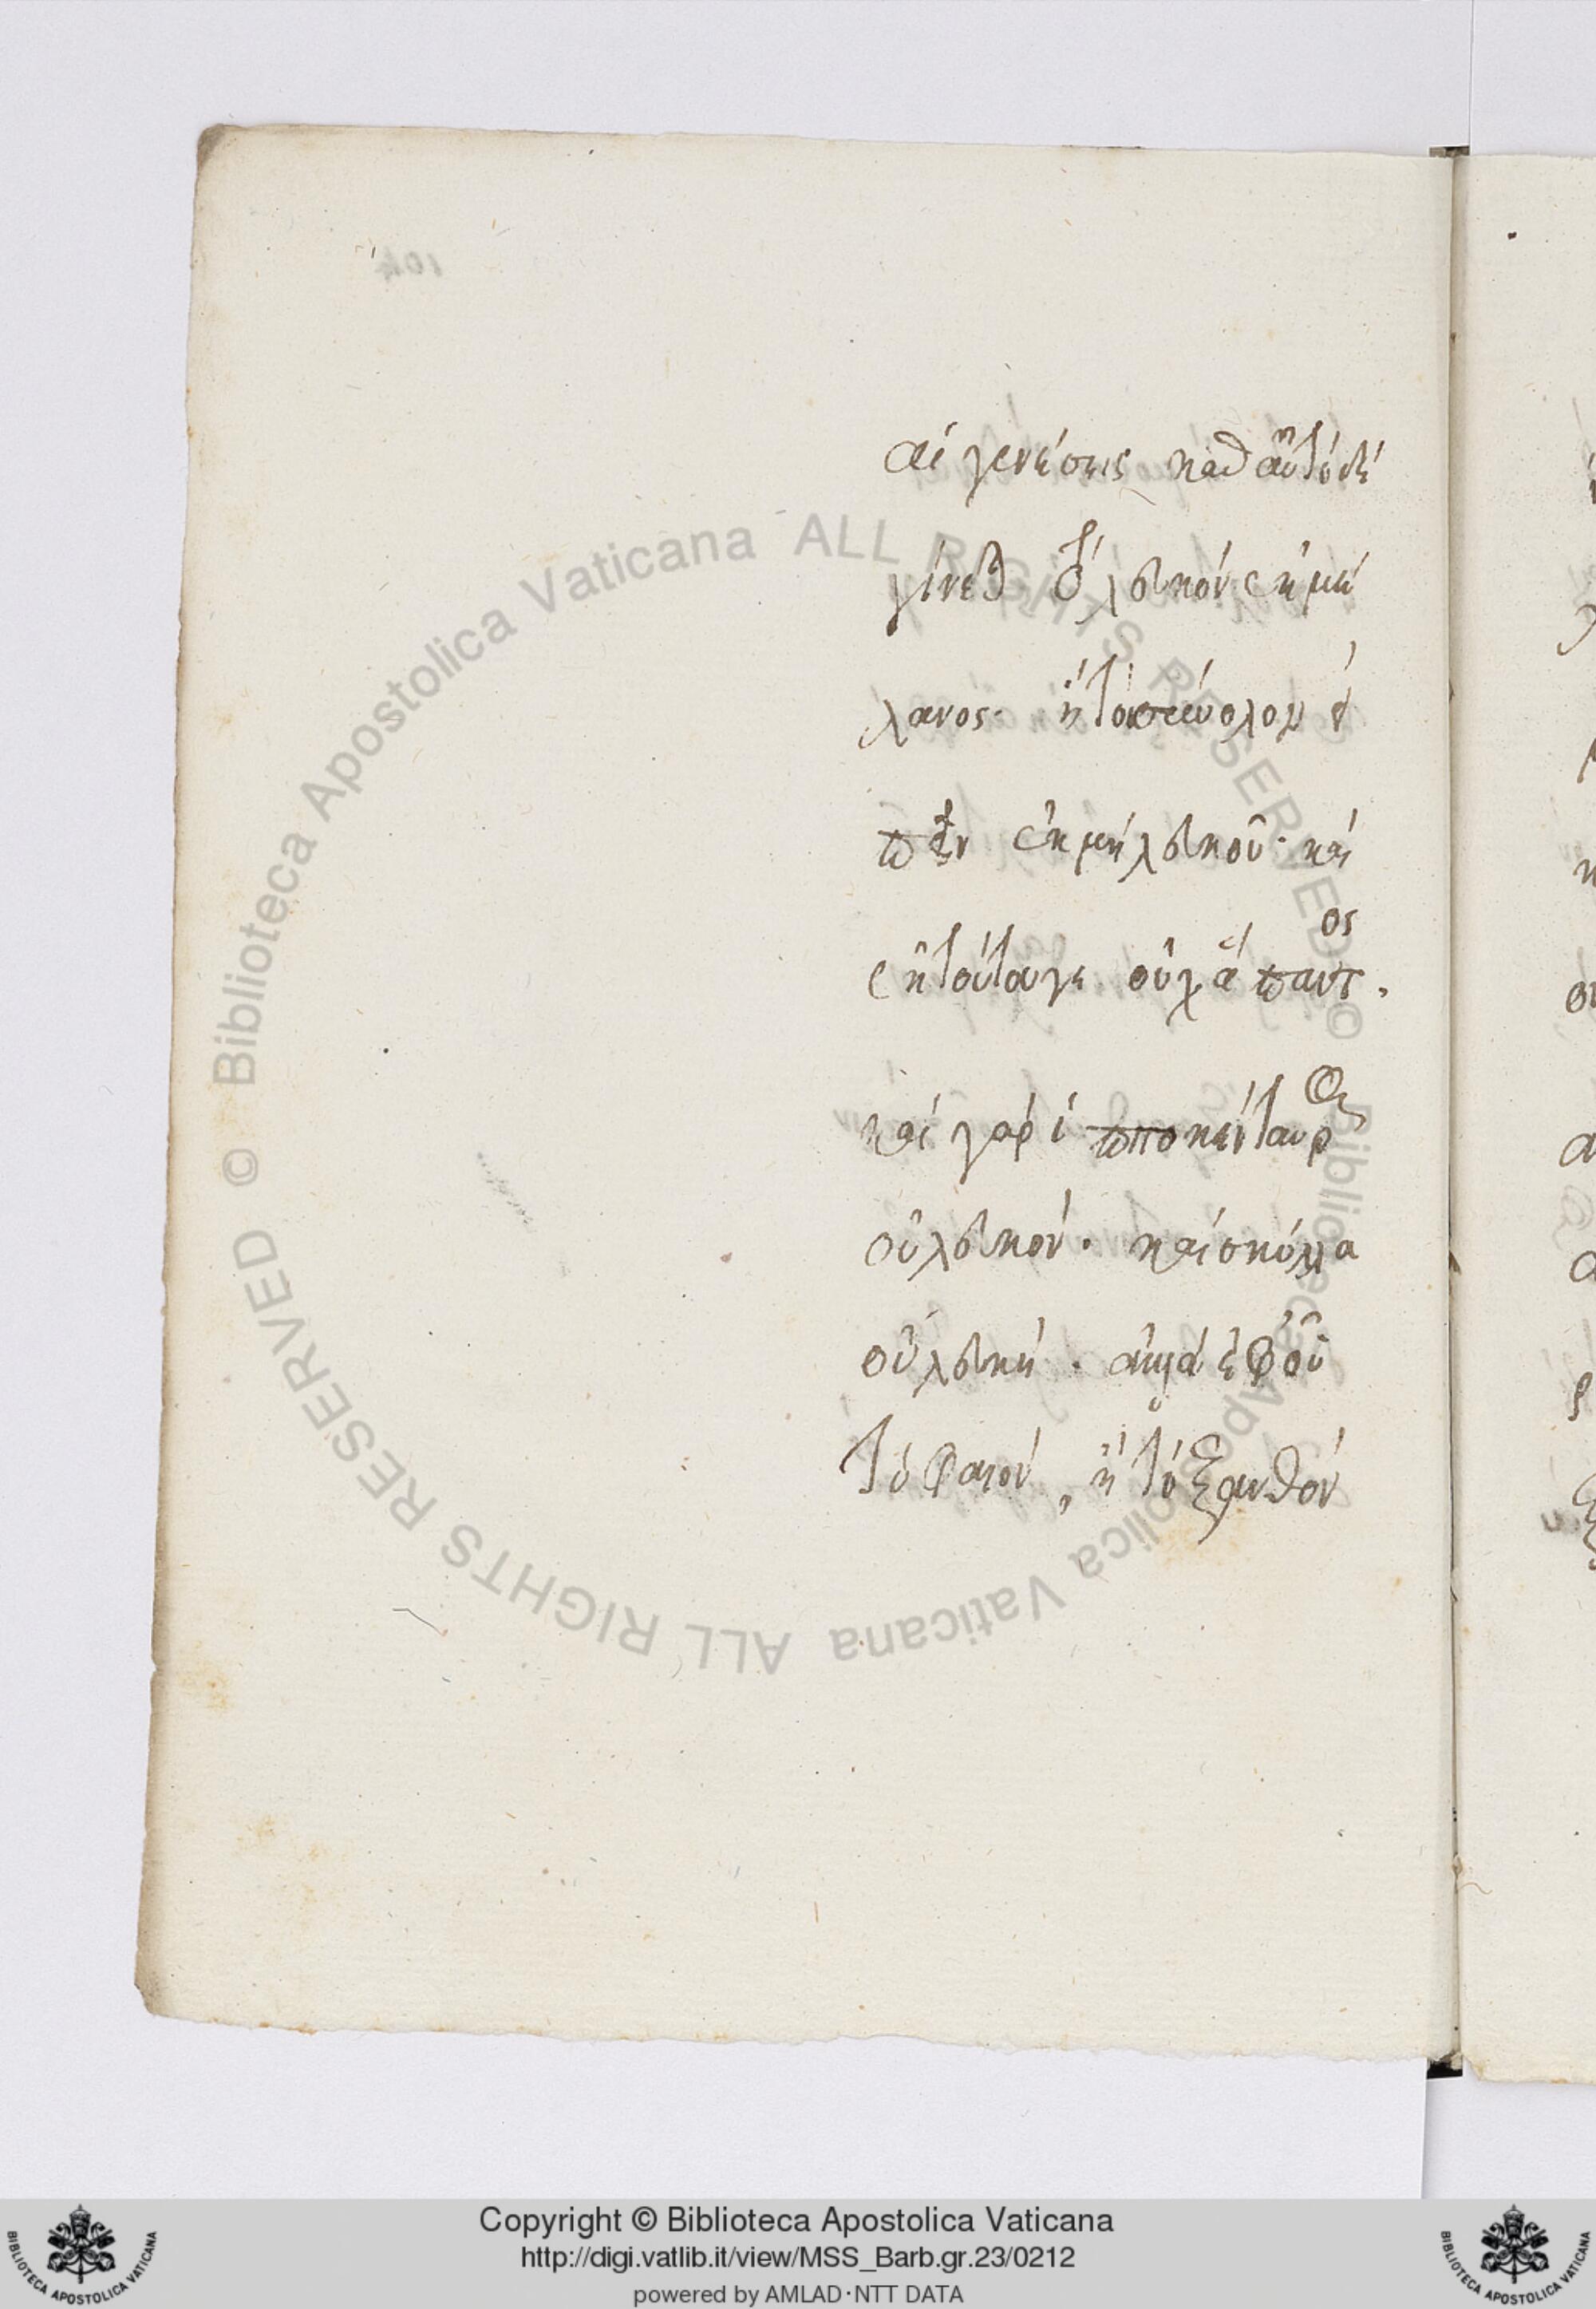 αἱ γενέσεις καθ αὑτὸ δὲ
γίνεται οὐ λευκὸν ἐκ μέ
λανος. ἢ τὸ ἀσκώολον ἐ
ἐκ μὴ λευκοῦ. καὶ
ἐκ τούτου γε οὐχ ἅπαντος.
καὶ γὰρ ἱπποκένταυρος
οὐ λευκόν. καὶ σκύλλα
οὐ λευκή. ἀλλὰ ἐφ οὗ
τὸ φαιόν, ἢ τὸ ξανθόν
104
© Biblioteca Apostolica Vaticana ALL RIGHTS RESERVED © Biblioteca Apostolica Vaticana ALL RIGHTS RESERVED
Copyright © Biblioteca Apostolica Vaticana
http://digi.vatlib.it/view/MSS_Barb.gr.23/0212
powered by AMLAD·NTT DATA
BIBLIOTECA APOSTOLICA VATICANA
BIBLIOTECA APOSTOLICA VATICANA